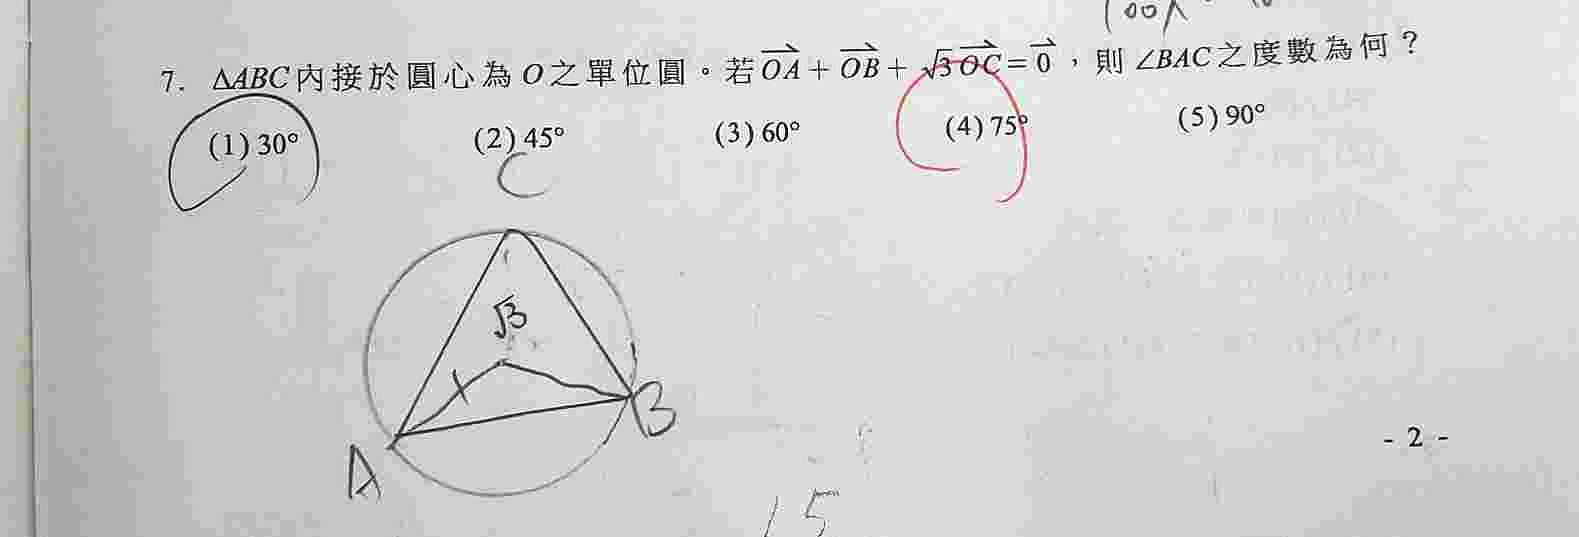 100x
7. △ABC內接於圓心為O之單位圓。若$\overrightarrow{OA}+\overrightarrow{OB}+\sqrt{3}\overrightarrow{OC}=\overrightarrow{0}$，則∠BAC之度數為何？
(1) 30° (2) 45° (3) 60° (4) 75° (5) 90°
C
√3
A
B
- 2 -
15